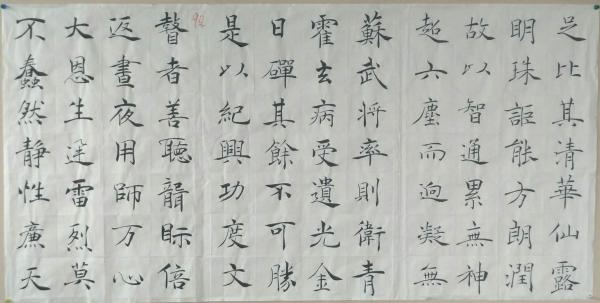 足比其清華仙露
明珠詎能方朗潤
故以智通累無神
超六塵而迥凝無
蘇武将率則衛青
霍去病受遺光金
日磾其餘不可勝
是以紀興功度文
92
瞽者善聽聾眎倍
返晝夜用師万心
大恩生迅雷烈莫
不蠢然静性廉天